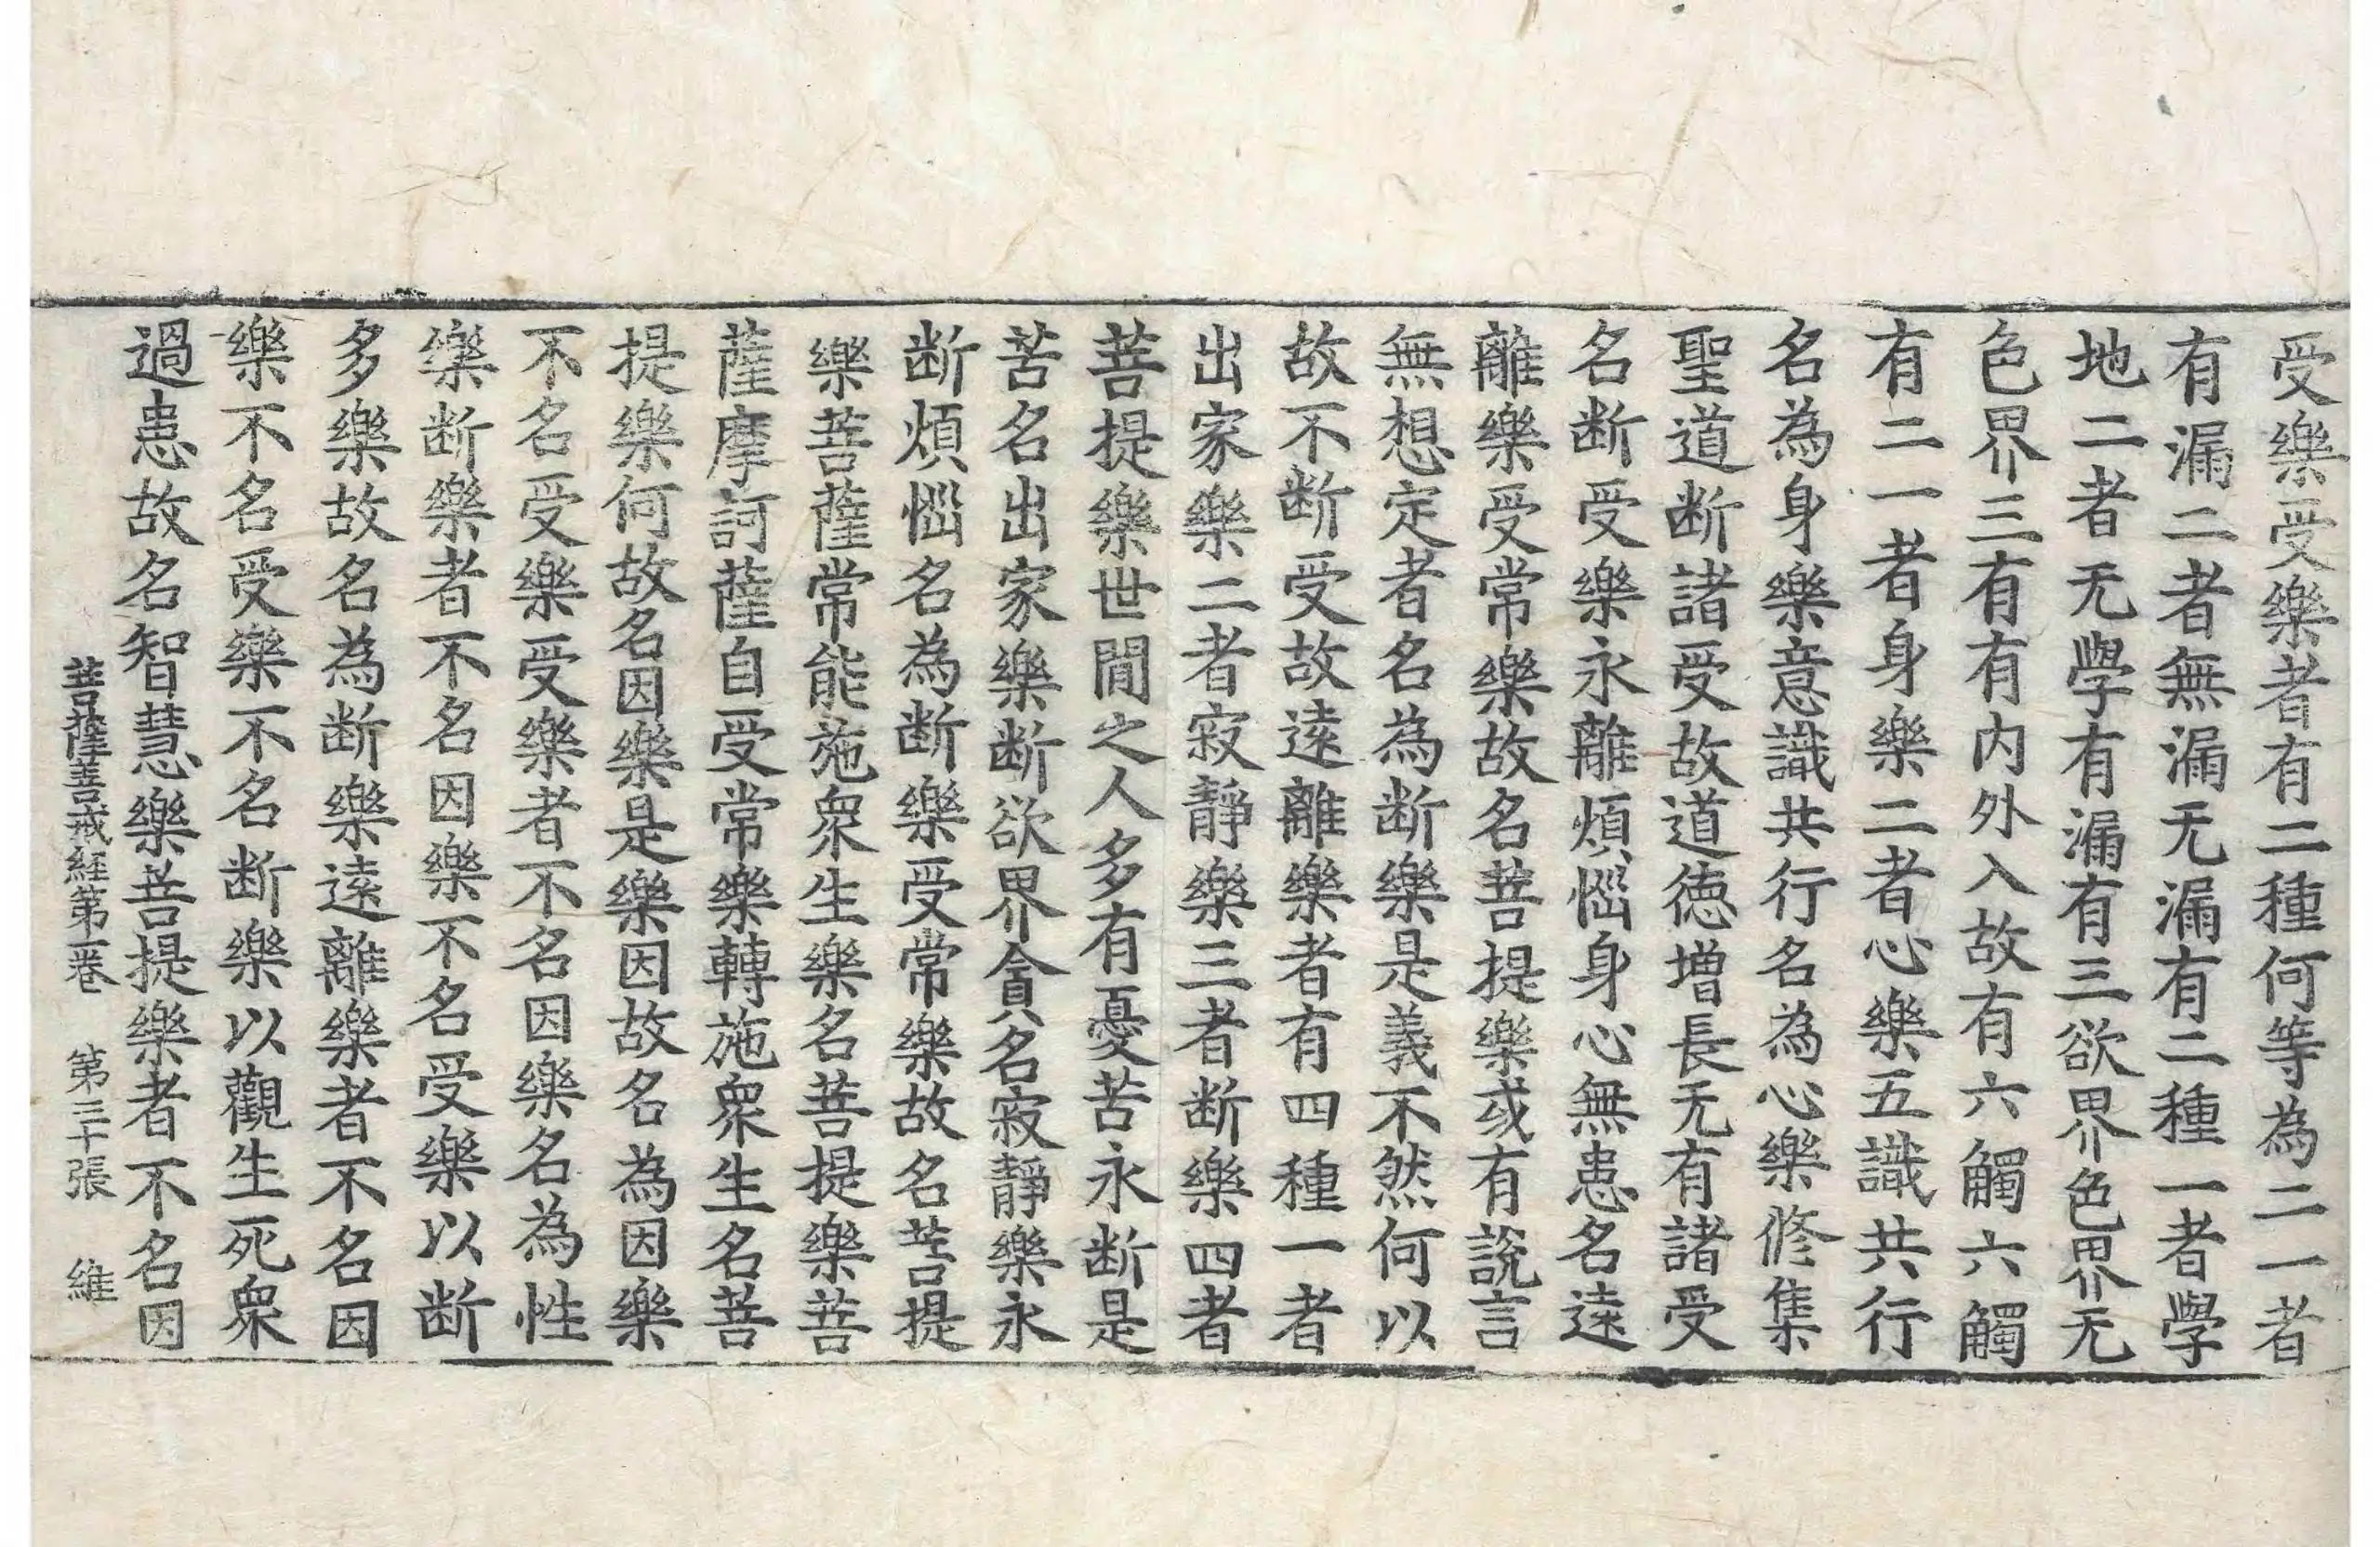 受樂受樂者有二種何等為二一者
有漏二者無漏无漏有二種一者學
地二者无學有漏有三欲界色界无
色界三有有内外入故有六觸六觸
有二一者身樂二者心樂五識共行
名為身樂意識共行名為心樂修集
聖道断諸受故道徳増長无有諸受
名断受樂永離煩惱身心無患名遠
離樂受常樂故名菩提樂或有說言
無想定者名為断樂是義不然何以
故不断受故遠離樂者有四種一者
出家樂二者寂靜樂三者断樂四者
菩提樂世間之人多有憂苦永断是
苦名出家樂断欲界貪名寂靜樂永
断煩惱名為断樂受常樂故名菩提
樂菩薩常能施衆生樂名菩提樂菩
薩摩訶薩自受常樂轉施衆生名菩
提樂何故名因樂是樂因故名為因樂
不名受樂受樂者不名因樂名為性
樂断樂者不名因樂不名受樂以断
多樂故名為断樂遠離樂者不名因
樂不名受樂不名断樂以觀生死衆
過患故名智慧樂菩提樂者不名因
菩薩善戒経第一卷 第三十張 維